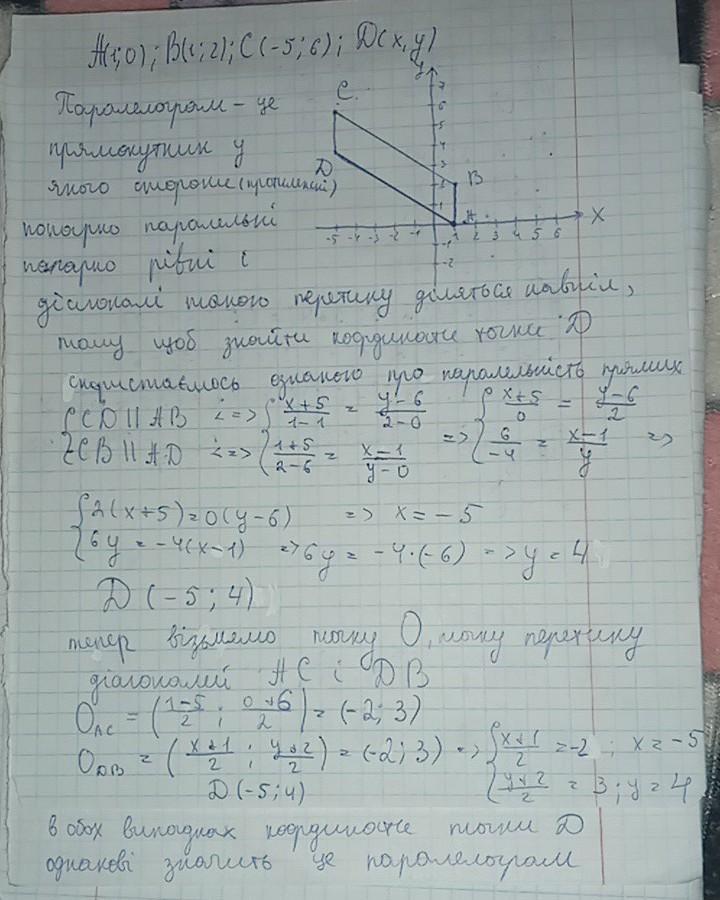 A(1;0); B(1;2); C(-5;6); D(x,y)
Паралелограм - це
прямокутник у
якого сторони (протилежні)
попарно паралельні
попарно рівні і
діагоналі точкою перетину діляться навпіл,
тому щоб знайти координати точки D
скористаємось ознакою про паралельність прямих
{CD || AB <=> {(x+5)/(1-1) = (y-6)/(2-0) => {(x+5)/0 = (y-6)/2
{CB || AD <=> {(1+5)/(2-6) = (x-1)/(y-0) {6/(-4) = (x-1)/y =>
{2(x+5)=0(y-6) => x = -5
{6y = -4(x-1) => 6y = -4·(-6) => y = 4
D (-5; 4)
тепер візьмемо точку O, точку перетину
діагоналей AC і DB
O_AC = ((1-5)/2 ; (0+6)/2) = (-2; 3)
O_DB = ((x+1)/2 ; (y+2)/2) = (-2; 3) => {(x+1)/2 = -2 ; x = -5
D (-5; 4) {(y+2)/2 = 3; y = 4
в обох випадках координати точки D
однакові значить це паралелограм
y
7
6
5
4
3
2
1
-1
-2
C
D
B
A
X
-5 -4 -3 -2 -1 1 2 3 4 5 6